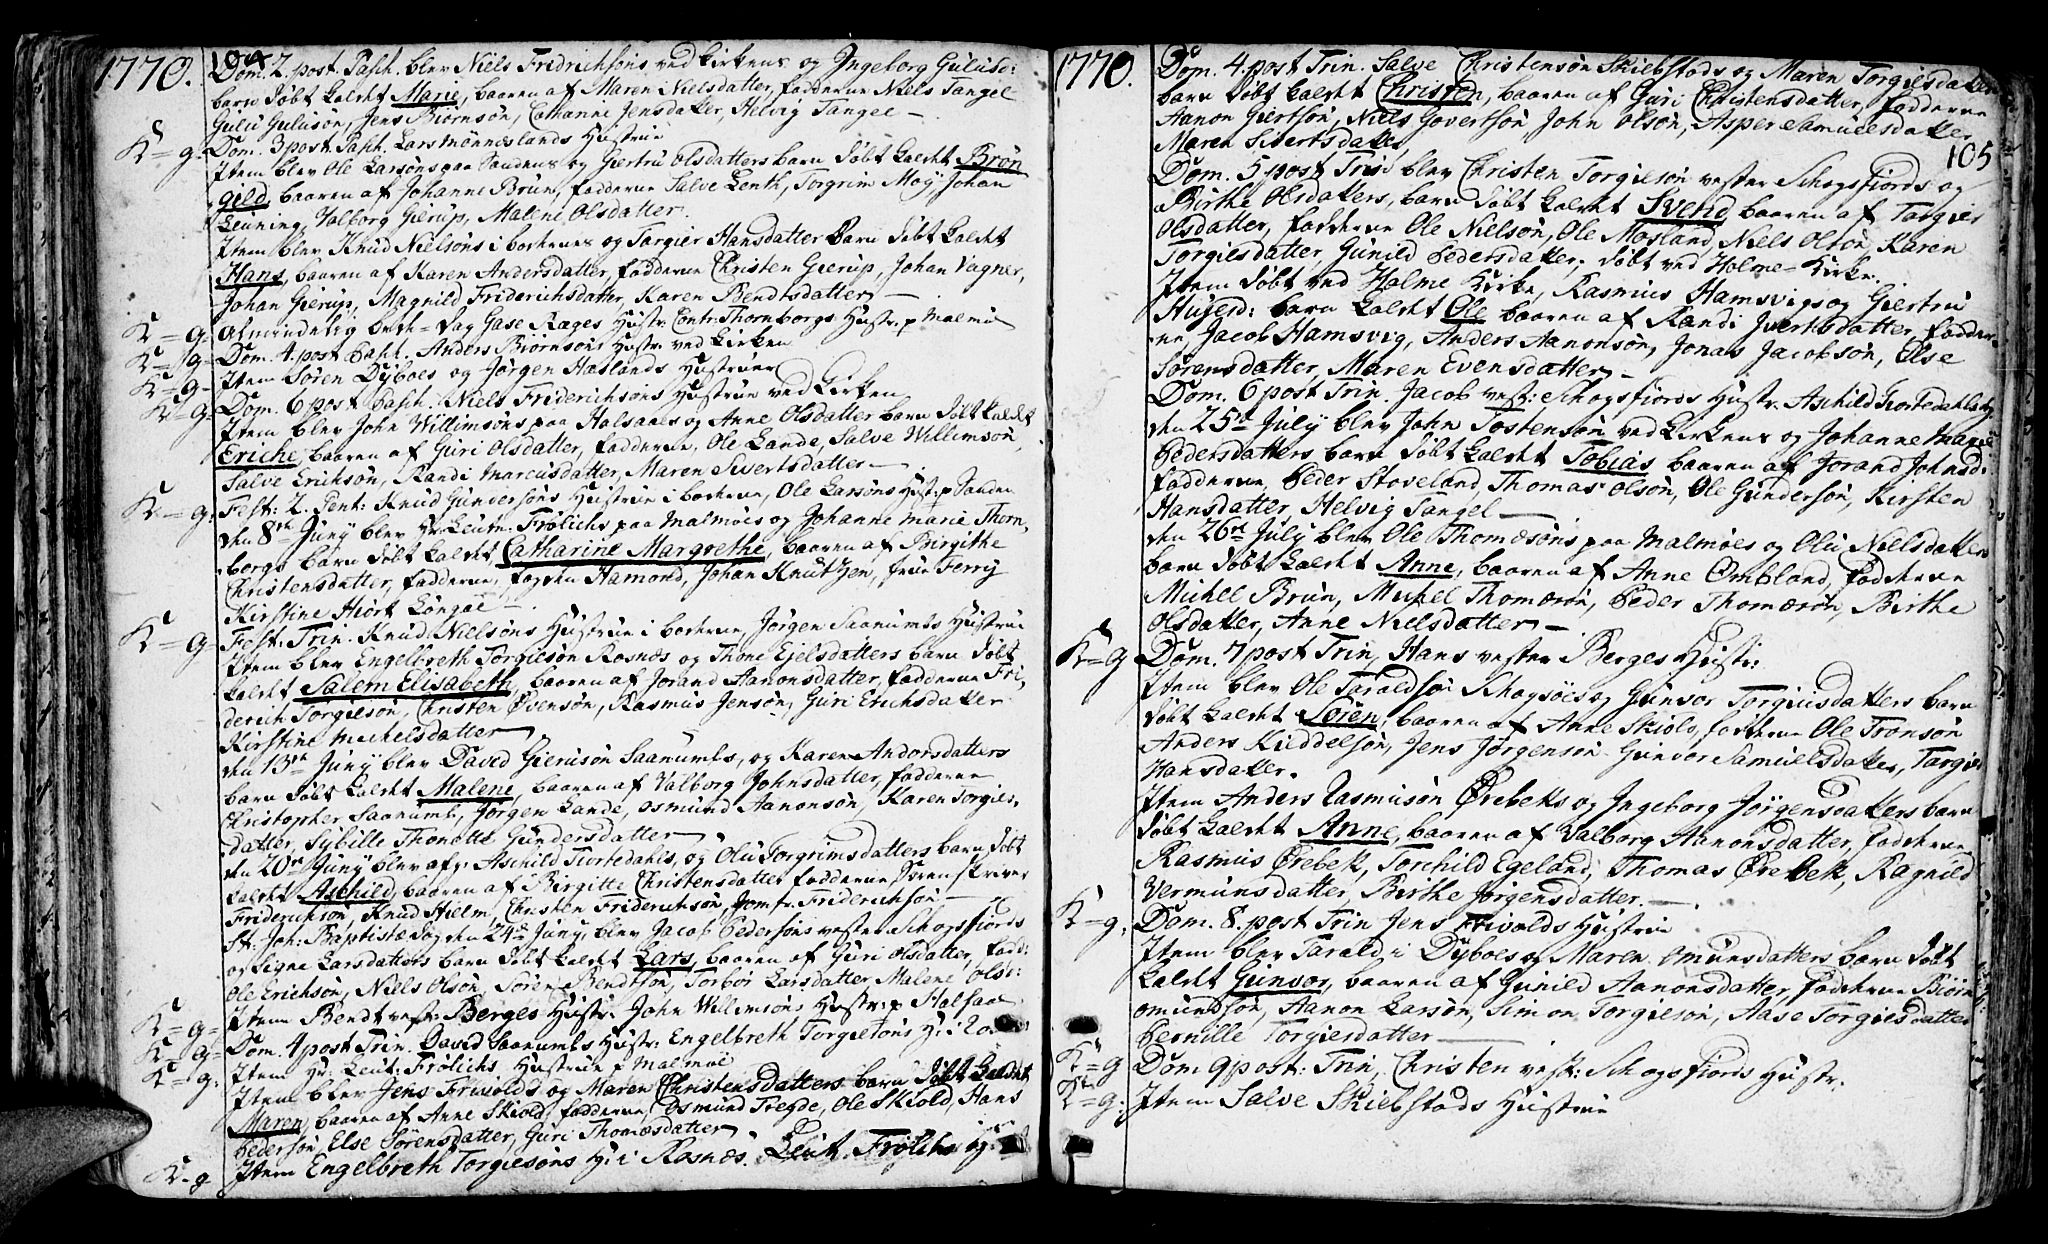 1770.
104
Dom. 2. post. Pasch. blev Niels Fridrichsøns ved Kirkens og Ingeborg Gulusd:
barn døbt kaldet Marie, baaren af Maren Nielsdatter, fadderne Niels Tangee
Gulu Gulusøn, Jens Biørnsøn, Cathanne Jensdatter, Helvig Tangee
K=g. Dom. 3 post. Pasch. Lars Monneslands Hustrue
Item blev Ole Larsøns paa Sandnes og Giertru Olsdatters barn døbt kaldet Brøn
gild, baaren af Johanne Brun, fadderne Salve Lenth, Torgrim Moy, Johan
Leuning, Valborg Gierup, Malene Olsdatter.
Item blev Knud Nielsøns i borkenes og Torgier Hansdatter barn døbt kaldet
Hans, baaren af Karen Andersdatter, fadderne Christen Gierup, Johan Vagner,
Johan Gierup, Magnild Friderichsdatter, Karen Bendtsdatter
K=g. Almindelig bede=dag Gase Rages Hustr: Contr: Thornborgs Hustr. p Malmøe
K=g- Dom. 4. post Pasch. Anders Biørnsøns Hustr. ved Kirken
K=g- Item Søren Dyboes og Jørgen Haslands Hustruer
K=g. Dom. 6 post Pasch. Niels Friderichsøns Hustrue ved Kirken
Item blev John Willimsøns paa Halsaaes og Anne Olsdatter barn døbt kaldet
Eriche, baaren af Guri Olsdatter, fadderne, Ole Lande, Salve Willemsøn,
Salve Erichsøn, Randi Marcusdatter, Maren Sivertsdatter
K=g: Fest: 2. Pent: Knud Gunversøns Hustrue i borkene, Ole Larsøns Hust: p Sanden
den 8de Juny blev Hr. Leutn. Frølichs paa Malmøes og Johanne Marie Thorn,
borgs barn døbt kaldet Catharine Margrethe, baaren af Birgithe
Christensdatter, fadderne, fogden Hamond, Johan Knutzen, frue Ferry
Kirstine Hiort Longae
K=g Fest: Trin: Knud Nielsøns Hustrue i borkene, Jørgen Saanumbs Hustrue
Item blev Engelbreth Torgiesøn Rosnæs og Thone Ejelsdatters barn døbt
kaldet Salem Elisabeth, baaren af Jorand Aanonsdatter, fadderne Fri,
derich Torgiesøn, Christen Øvensøn, Rasmus Jensøn, Guri Erichsdatter
Kirstine Michelsdatter
den 13de Juny blev David Gierusøn Saanumbs, og Karen Andorsdatters
barn døbt kaldet Malene, baaren af Valborg Johnsdatter, fadderne
Christopher Saanumb, Jørgen Lande, Osmund Aanonsøn, Karen Torgies,
datter, Sybille Thonette Gundersdatter
den 20de Juny blev afg: Aschild Tiortedahls, og Olu Torgrimsdatters barn døbt
kaldet Aschild, baaren af Birgitte Christensdatter fadderne, Svenskriver
Friderichsøn, Knud Hielm, Christen Friderichsøn, Jomfr. Friderichsøn,
St. Joh: Baptistæ dag den 24de Juny, blev Jacob Pedersøns vester Schogsfiords
og Signe Larsdatters barn døbt kaldet Lars, baaren af Guri Olsdatter, fadd:
Ole Erichsøn, Niels Olsøn, Søren Bendtsøn, Torbor Larsdatter Malene Olsd:
K=g= Item Bendt vest: Berges Hustr. John Willemsøns Hustr: p Halsaa
K=g= Dom. 4 post Trin. David Saanumbs Hustr: Engelbreth Torgiesøns H: i Ros
K=g: Item Hr: Leut: Frølichs Hustrue p Malmøe
Item blev Jens Frivolds og Maren Christensdatters barn døbt kaldet
Maren, baaren af Anne Skiold, fadderne, Osmund Tregde, Ole Skiold, Hans
Pedersøn, Else Sørensdatter, Guri Thomæsdatter
K-g Item Engelbreth Torgiesøns H: i Rosnæs. Leut. Frølichs H:
1770.
Dom. 4. post Trin. Salve Christensøn Skiebstads og Maren Torgiesdatters
barn døbt kaldet Christen, baaren af Guri Christensdatter, fadderne
Aanon Giertsøn, Niels Govertsøn John Olsøn, Asper Samuelsdatter
Maren Sivertsdatter
105
Dom. 5 post Trin blev Christen Torgiesøn vester Schogsfiords og
Birthe Olsdatters, barn døbt kaldet Svend, baaren af Torgier
Olsdatter, fadderne Ole Nielsøn, Ole Mosland, Niels Olsøn, Karen
Torgiesdatter, Gunild Pedersdatter, døbt ved Holme=Kirke.
Item døbt ved Holme Kirke, Rasmus Hamsvigs og Giertru
Hugesd: barn kaldet Ole baaren af Randi Jvertsdatter, fadder-
ne, Jacob Hamsvig, Anders Aanonsøn, Jonas Jacobsøn, Else
Sørensdatter, Maren Evensdatter
Dom. 6 post Trin. Jacob vest: Schogsfiords Hustr. Aschild Tiortedahls
den 25de July blev John Tostensøn ved Kirkens og Johanne Marie
Pedersdatters barn døbt kaldet Tobias baaren af Jorand Johnsd:
fadderne, Peder Stoveland, Thomas Olsøn, Ole Gundersøn, Kirsten
Hansdatter, Helvig Tangel
den 26de July blev Ole Thomæsøns paa Malmøes og Olu Nielsdatters
barn døbt kaldet Anne, baaren af Anne Ombland, fadderne
Michel Brun, Michel Thomæsøn, Peder Thomæsøn, Birthe
Olsdatter, Anne Nielsdatter
K=g Dom. 7 post Trin, Hans vester Berges Hustr:
Item blev Ole Taraldsøn Schogsøes og Gunvor Torgiusdatters barn
døbt kaldet Søren, baaren af Anne Skiold, fadderne Ole Tronsøn
Anders Kieddelsøn, Jens Jørgensøn Gunvor Samuelsdatter, Targier
Hansdatter.
Item Anders Rasmusøn Ørebeks og Ingeborg Jørgensdatters barn
døbt kaldet Anne, baaren af Valborg Aanonsdatter, fadderne
Rasmus Ørebek, Torchild Egeland, Thomas Ørebek, Ragnild
Vermunsdatter, Birthe Jørgensdatter.
K=g. Dom. 8. post Trin Jens Frivolds Hustrue
Item blev Tarald i Dyboes og Maren Omunsdatters barn døbt
kaldet Gunvor, baaren af Gunild Aanonsdatter, fadderne Biørn
Omundsøn, Aanon Larsøn, Simon Torgiesøn, Aase Torgiesdatter
Pernille Torgiersdatter
K=g Dom 9 post: Trin, Christen vest: Schogsfiords Hustr:
K=g: Item Salve Skiebstads Hustrue